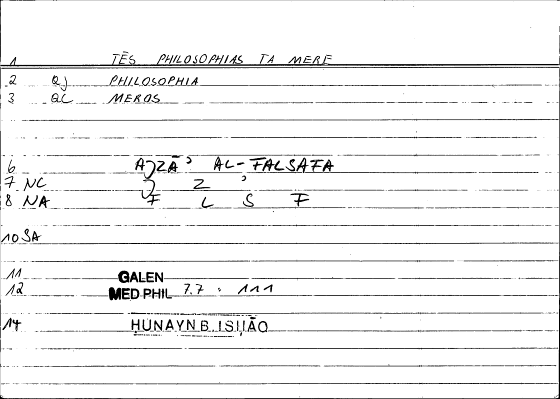 1 TĒS PHILOSOPHIAS TA MERE
2 QJ PHILOSOPHIA
3 QC MEROS
6 AJZĀʾ AL-FALSAFA
7 NC J Z ʾ
8 NA F L S F
10 SA
11 GALEN
12 MED PHIL 7.7 · 111
14 ḤUNAYN B. ISḤĀQ